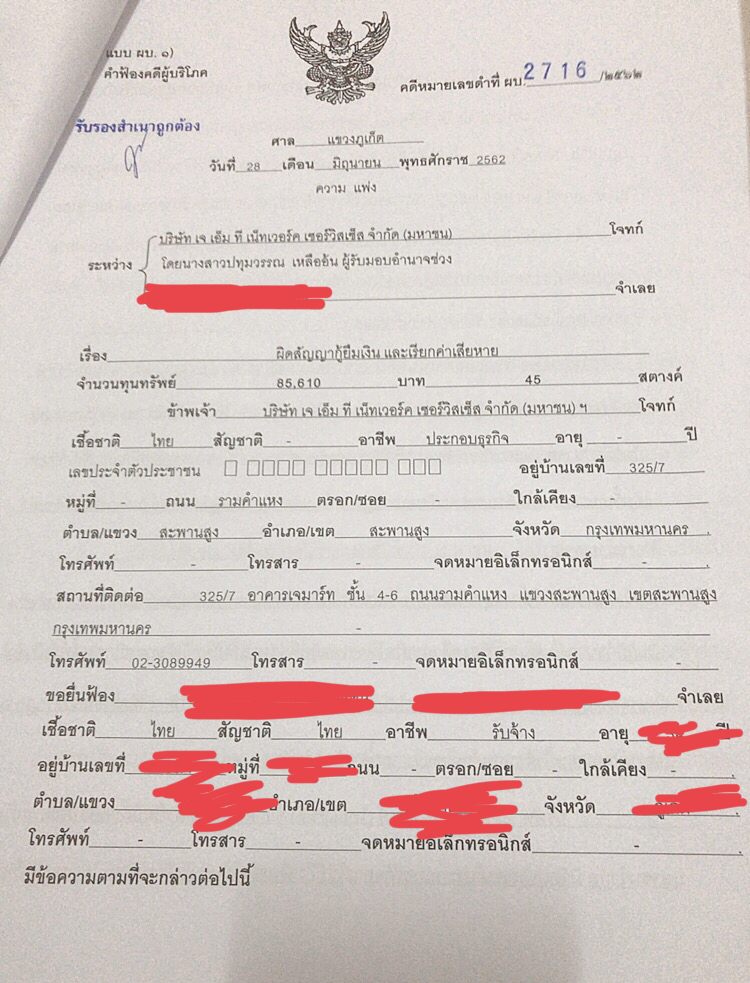 แบบ ผบ. ๑)
คำฟ้องคดีผู้บริโภค
คดีหมายเลขดำที่ ผบ. 2716 /๒๕๖๒
รับรองสำเนาถูกต้อง
ศาล แขวงภูเก็ต
วันที่ 28 เดือน มิถุนายน พุทธศักราช 2562
ความ แพ่ง
บริษัท เจ เอ็ม ที เน็ทเวอร์ค เซอร์วิสเซ็ส จำกัด (มหาชน) โจทก์
ระหว่าง โดยนางสาวปทุมวรรณ เหลืออ้น ผู้รับมอบอำนาจช่วง
จำเลย
เรื่อง ผิดสัญญากู้ยืมเงิน และเรียกค่าเสียหาย
จำนวนทุนทรัพย์ 85,610 บาท 45 สตางค์
ข้าพเจ้า บริษัท เจ เอ็ม ที เน็ทเวอร์ค เซอร์วิสเซ็ส จำกัด (มหาชน) ฯ โจทก์
เชื้อชาติ ไทย สัญชาติ - อาชีพ ประกอบธุรกิจ อายุ - ปี
เลขประจำตัวประชาชน อยู่บ้านเลขที่ 325/7
หมู่ที่ - ถนน รามคำแหง ตรอก/ซอย - ใกล้เคียง -
ตำบล/แขวง สะพานสูง อำเภอ/เขต สะพานสูง จังหวัด กรุงเทพมหานคร .
โทรศัพท์ - โทรสาร - จดหมายอิเล็กทรอนิกส์ - .
สถานที่ติดต่อ 325/7 อาคารเจมาร์ท ชั้น 4-6 ถนนรามคำแหง แขวงสะพานสูง เขตสะพานสูง
กรุงเทพมหานคร -
โทรศัพท์ 02-3089949 โทรสาร - จดหมายอิเล็กทรอนิกส์ -
ขอยื่นฟ้อง จำเลย
เชื้อชาติ ไทย สัญชาติ ไทย อาชีพ รับจ้าง อายุ ปี
อยู่บ้านเลขที่ หมู่ที่ ถนน - ตรอก/ซอย - ใกล้เคียง - .
ตำบล/แขวง อำเภอ/เขต จังหวัด .
โทรศัพท์ - โทรสาร - จดหมายอิเล็กทรอนิกส์ - .
มีข้อความตามที่จะกล่าวต่อไปนี้